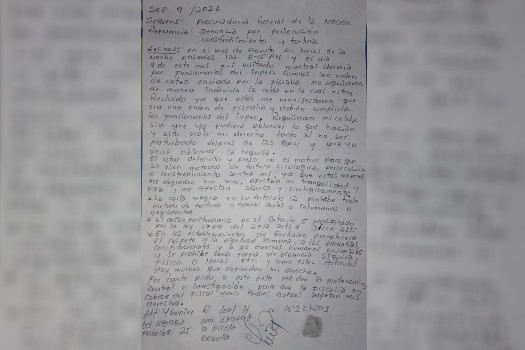 Sep 9 / 2024
Señores: Procuraduria General de la Nación
Referencia: Denuncia por persecución
constreñimiento y tortura
Hechos: en el mes de Agosto en horas de la
Noche pasadas las 8-15 PM y el dia
de este mes fui visitado mientras dormia
por funcionarios del inpec quienes con orden
de cateo enviada por la fiscalia me requisaron
de manera individual la celda en la cual estoy
recluido ya que ellos me manifestaron que
era una orden de fiscalia y debian cumplirla
los funcionarios del inpec. Requisaron mi celda
sin que yo pudiera observar lo que hacian
y esto viola mi derecho tanto al no ser
perturbado despues de las 6PM y que yo
debo observar la requisa.
El estar detenido y preso, no es motivo para que
se usen metodos de tortura sicologica, persecución
o constreñimiento contra mi, ya que estas acciones
me degradan aun mas, afectan mi tranquilidad y
paz, me afectan siquica y sicologicamente
La carta magna en su Articulo 12 prohibe todo
metodo de tortura o penas crueles o inhumanas o
degradantes
codigo penitenciario en el Articulo 5 modificado
por la ley 1709 del 2014
En los establecimientos de Reclusion prevalecera
el respeto a la dignidad humana, a las garantias
Constitucionales y a los derechos humanos universales
y se prohibe toda forma de violencia siquica
fisica o Moral
Hay muchos que defienden mi derecho.
Por tanto pido a este ente me den la protección
Control e Investigación para que la fiscalia en
Cabeza del fiscal Mario Andres Burgos respeten mis
derechos.
Att: Yhonier R. Leal H. cc 16227503
Nui 1134497
Pabellon 25 la Picota
Bogota